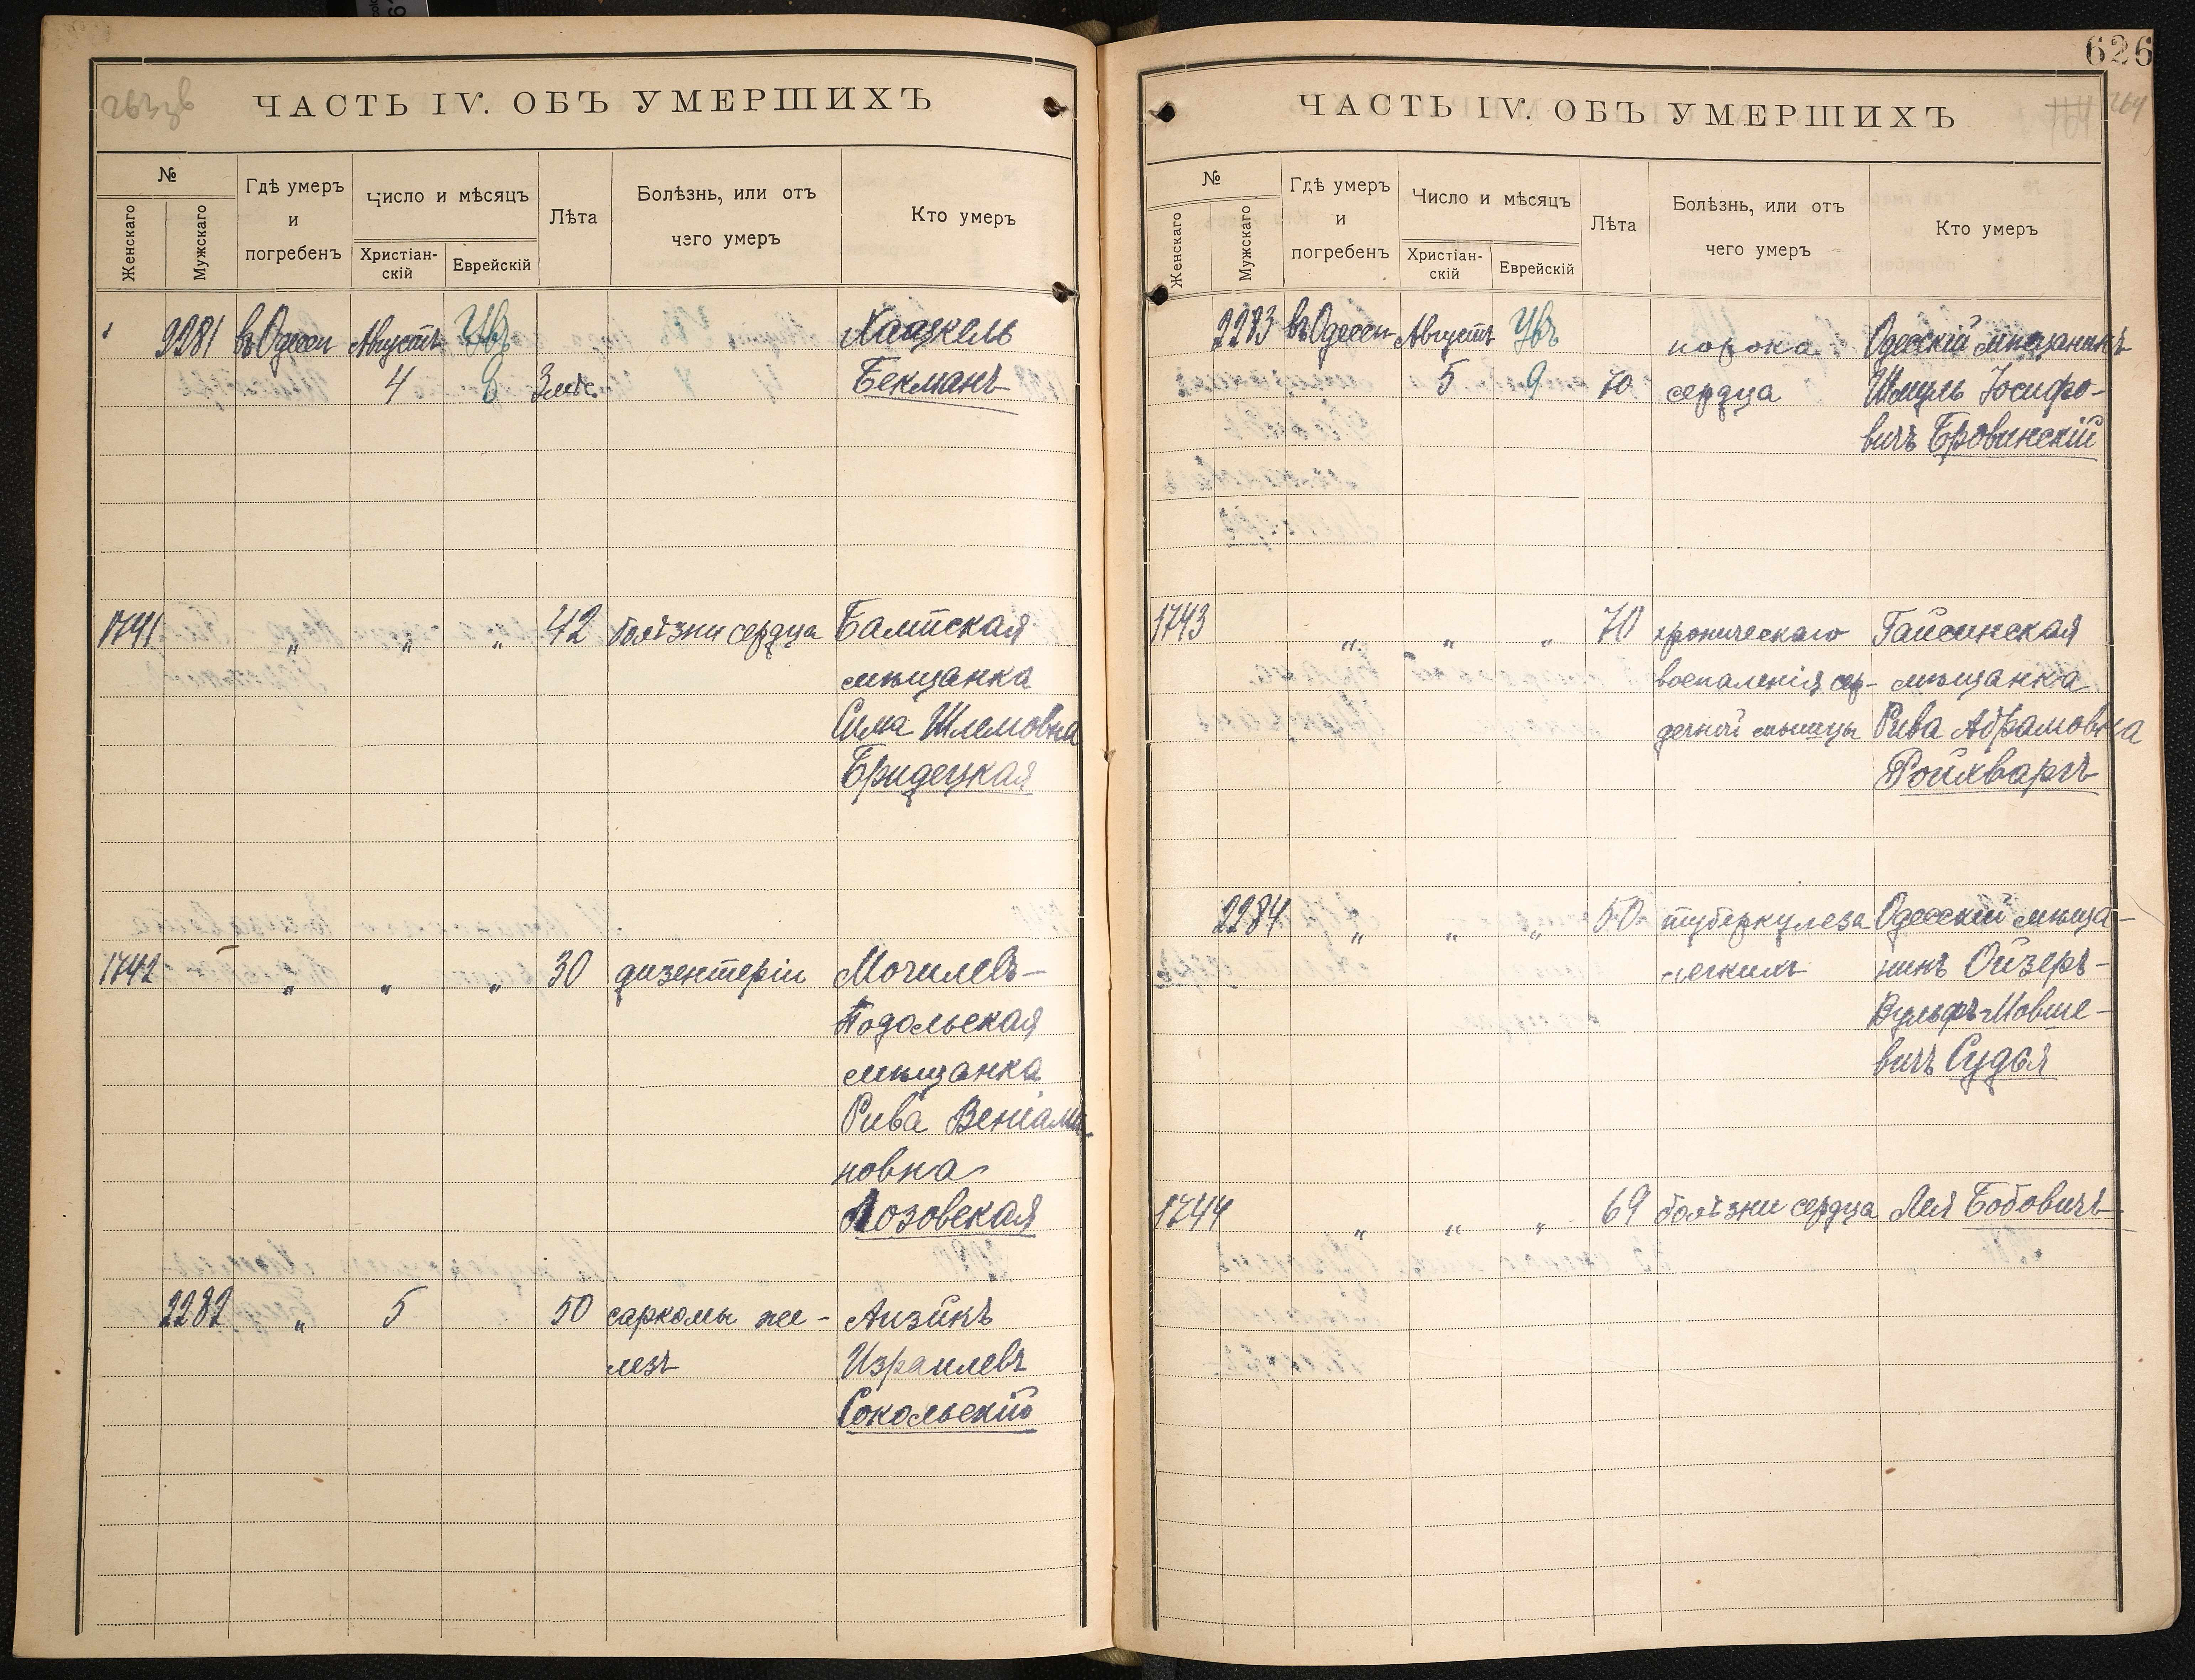 263 зв
ЧАСТЬ IV. ОБЪ УМЕРШИХЪ
№
Женскаго
Мужскаго
Гдѣ умеръ
и
погребенъ
Число и мѣсяцъ
Христіан-
скій
Еврейскій
Лѣта
Болѣзнь, или отъ
чего умеръ
Кто умеръ
2281 въ Одессѣ Августъ Хацкель
4 8 3 мѣс. Бекманъ
1741 " " " 42 болѣзни сердца Балтская
мѣщанка
Сима Шлемовна
Бридецкая
1742 " " " 30 дизентеріи Могилевъ-
Подольская
мѣщанка
Рива Веніами-
новна
Лозовская
2282 " 5 50 саркомы же- Аизикъ
лезъ Израилевъ
Сокольскій
626
ЧАСТЬ IV. ОБЪ УМЕРШИХЪ
164 264
№
Женскаго
Мужскаго
Гдѣ умеръ
и
погребенъ
Число и мѣсяцъ
Христіан-
скій
Еврейскій
Лѣта
Болѣзнь, или отъ
чего умеръ
Кто умеръ
2283 въ Одессѣ Августъ порока Одесскій мѣщанинъ
5 9 70 сердца Шмуль Іосифо-
вичъ Бровинскій
1743 " " " 70 хроническаго Гайсинская
воспаленія сер- мѣщанка
дечной мышцы Рива Абрамовна
Ройхваргъ
2284 " " " 50 туберкулеза Одесскій мѣща-
легкихъ нинъ Ойзеръ-
Вульфъ Мовше-
вичъ Судья
1744 " " " 69 болѣзни сердца Лея Бобовичъ